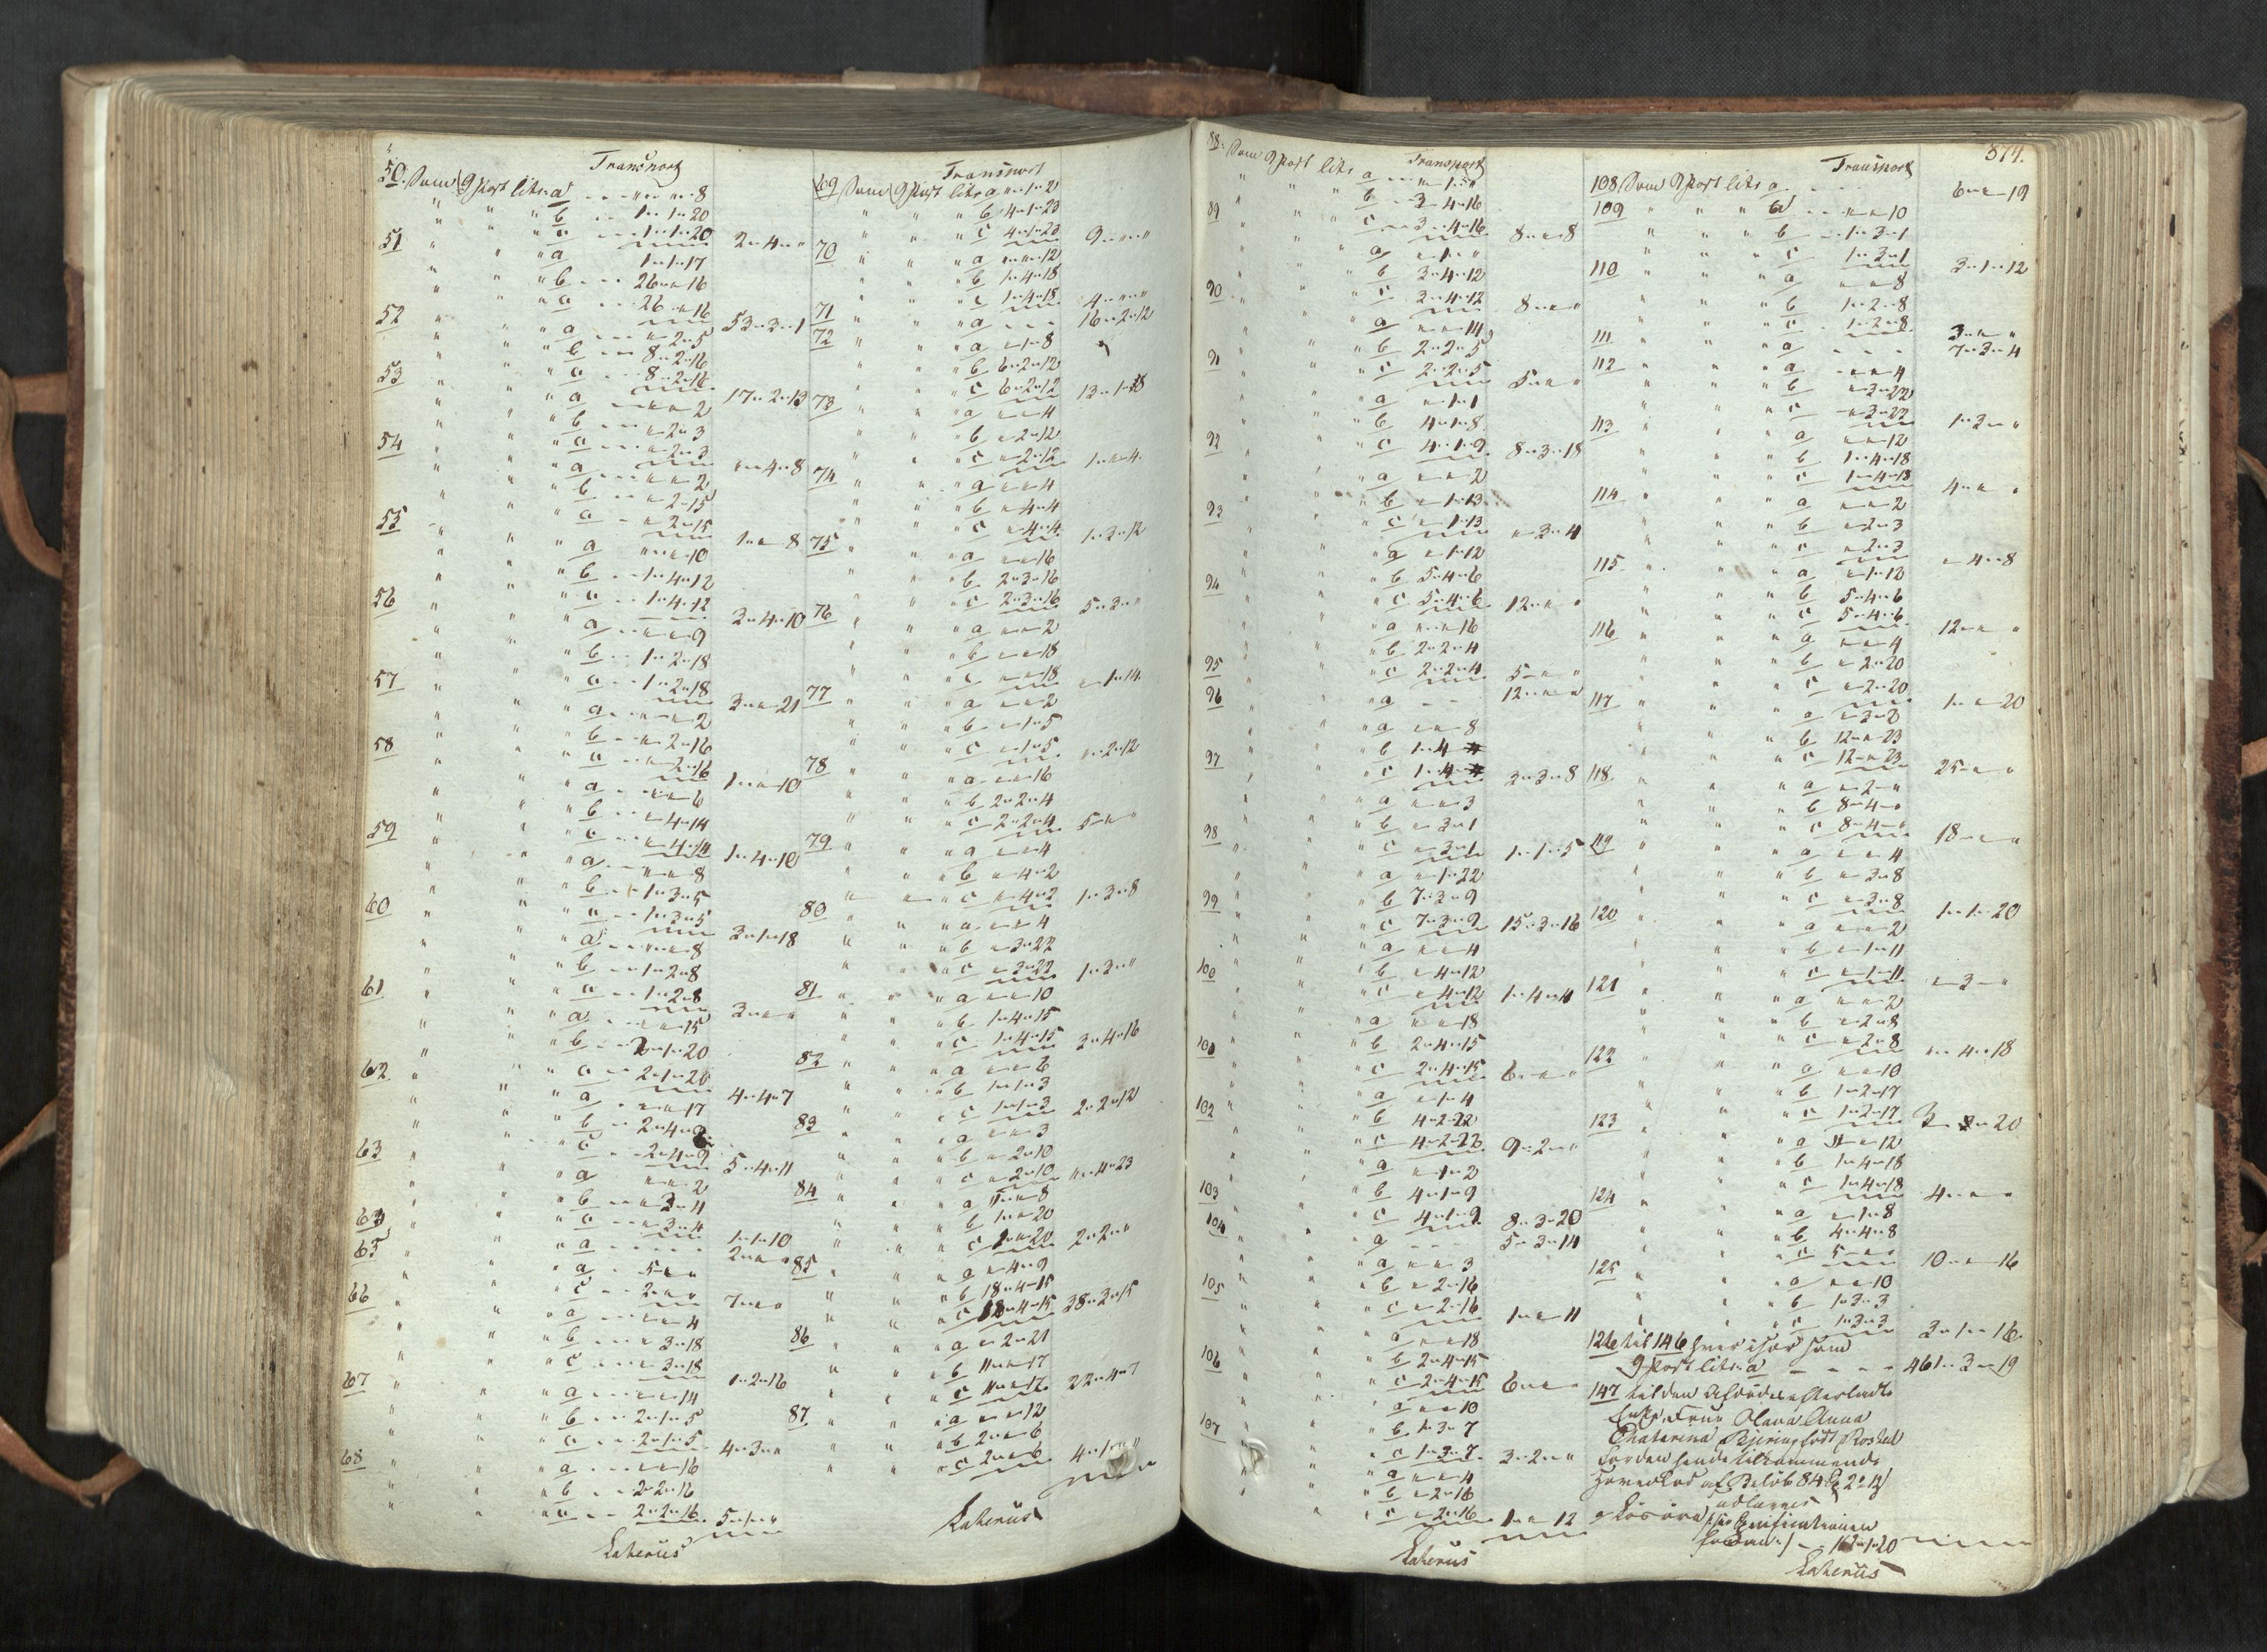 Transport
50. Som 9 Post litr. a - - " - " - 8
" " " b - - 1 - 1 - 20
" " " c - - 1 - 1 - 20 2 - 4 - "
51 " " a 1 - 1 - 17
" " " b - - 26 - " - 16
" " " c - - 26 - " - 16 53 - 3 - 1
52 " " a - - " - 2 - 5
" " " b - - 8 - 2 - 16
" " " c - - 8 - 2 - 16 17 - 2 - 13
53 " " a - - " - " - 2
" " " b - - " - 2 - 3
" " " c - - " - 2 - 3 " - 4 - 8
54 " " a - - " - " - 2
" " " b - - " - 2 - 15
" " " c - - " - 2 - 15 1 - " - 8
55 " " a " - " - 10
" " " b - - 1 - 4 - 12
" " " c - - 1 - 4 - 12 3 - 4 - 10
56 " " a - - " - " - 9
" " " b - - 1 - 2 - 18
" " " c - - 1 - 2 - 18 3 - " - 21
57 " " a - - " - " - 2
" " " b - - " - 2 - 16
" " " c - - " - 2 - 16 1 - " - 10
58 " " a - - " - " - 6
" " " b - - " - 4 - 14
" " " c - - " - 4 - 14 1 - 4 - 10
59 " " a - - " - " - 8
" " " b - - 1 - 3 - 5
" " " c - - 1 - 3 - 5 3 - 1 - 18
60 " " a - - " - " - 8
" " " b - - 1 - 2 - 8
" " " c - - 1 - 2 - 8 3 - " - "
61 " " a - - " - " - 15
" " " b - - 2 - 1 - 20
" " " c - - 2 - 1 - 20 4 - 4 - 7
62 " " a - - " - " - 17
" " " b - - 2 - 4 - 9
" " " c - - 2 - 4 - 9 5 - 4 - 11
63 " " a " - " - 2
" " " b - - " - 3 - 4
" " " c - - " - 3 - 4 1 - 1 - 10
64 " " a - - - - 2 - " - "
65 " " a - 5 - " - "
" " " c - - 2 - " - " 7 - " - "
66 " " a - - " - " - 4
" " " b - - " - 3 - 18
" " " c - - " - 3 - 18 1 - 2 - 16
67 " " a - - " - " - 14
" " " b - - 2 - 1 - 5
" " " c - - 2 - 1 - 5 4 - 3 - "
68 " " a - - " - " - 16
" " " b - - 2 - 2 - 16
" " " c - - 2 - 2 - 16 5 - 1 - "
Laherius
Transport
69 Som 9 Post litr a " - 1 - 2
" " " b 4 - 1 - 23
" " " c 4 - 1 - 23 9 - " - "
70 " " a " - " - 12
" " " b 1 - 4 - 18
" " " c 1 - 4 - 18 4 - " - "
71 " " a - - - 16 - 2 - 12
72 " " a " - 1 - 8
" " " b 6 - 2 - 12
" " " c 6 - 2 - 12 13 - 1 - 8
73 " " a " - " - 4
" " " b " - 2 - 12
" " " c " - 2 - 12 1 - " - 4
74 " " a " - " - 4
" " " b " - 4 - 4
" " " c " - 4 - 4 1 - 3 - 12
75 " " a " - " - 16
" " " b 2 - 3 - 16
" " " c 2 - 3 - 16 5 - 3 - "
76 " " a " - " - 2
" " " b " - " - 18
" " " c " - " - 18 " - 1 - 14
77 " " a " - " - 2
" " " b " - 1 - 5
" " " c " - 1 - 5 " - 2 - 12
78 " " a " - " - 16
" " " b 2 - 2 - 4
" " " c 2 - 2 - 4 5 - " - "
79 " " a " - " - 4
" " " b " - 4 - 2
" " " c " - 4 - 2 1 - 3 - 8
80 " " a " - " - 4
" " " b " - 3 - 22
" " " c " - 3 - 22 1 - 3 - "
81 " " a " - " - 10
" " " b 1 - 4 - 15
" " " c 1 - 4 - 15 3 - 4 - 16
82 " " a " - " - 6
" " " b 1 - 1 - 3
" " " c 1 - 1 - 3 2 - 2 - 12
83 " " a " - " - 3
" " " b " - 2 - 10
" " " c " - 2 - 10 " - 4 - 23
84 " " a " - " - 8
" " " b 1 - " - 20
" " " c 1 - " - 20 2 - 2 - "
85 " " a " - 4 - 9
" " " b 18 - 4 - 15
" " " c 18 - 4 - 15 38 - 3 - 15
86 " " a " - 2 - 21
" " " b 11 - " - 17
" " " c 11 - " - 17 22 - 4 - 7
87 " " a " - " - 12
" " " b 2 - " - 6
" " " c 2 - " - 6 4 - 1 - "
Laherius
Transport
88. Som 9 Post litr a - - " - 1 - "
" " " b - 3 - 4 - 16
" " " c - 3 - 4 - 16 8 - " - 8
89 " " a " - 1 - "
" " " b 3 - 4 - 12
" " " c 3 - 4 - 12 8 - " - "
90 " " a " - " - 14
" " " b 2 - 2 - 5
" " " c 2 - 2 - 5 5 - " - "
91 " " a " - 1 - 1
" " " b 4 - 1 - 8
" " " c 4 - 1 - 9 8 - 3 - 18
92 " " a " - " - 2
" " " b " - 1 - 13
" " " c " - 1 - 13 " - 3 - 4
93 " " a " - 1 - 12
" " " b 5 - 4 - 6
" " " c 5 - 4 - 6 12 - " - "
94 " " a " - " - 16
" " " b 2 - 2 - 4
" " " c 2 - 2 - 4 5 - " - "
95 " " a - - 12 - " - "
96 " " a " - " - 8
" " " b 1 - 4 -
" " " c 1 - 4 - 3 - 3 - 8
97 " " a " - " - 3
" " " b " - 3 - 1
" " " c " - 3 - 1 1 - 1 - 5
98 " " a " - 1 - 22
" " " b 7 - 3 - 9
" " " c 7 - 3 - 9 15 - 3 - 16
99 " " a " - " - 4
" " " b " - 4 - 12
" " " c " - 4 - 12 1 - 4 - 4
100 " " a " - " - 18
" " " b 2 - 4 - 15
" " " c 2 - 4 - 15 6 - " - "
101 " " a " - 1 - 4
" " " b 4 - 2 - 22
" " " c 4 - 2 - 22 9 - 2 - "
102 " " a " - 1 - 2
" " " b 4 - 1 - 9
" " " c 4 - 1 - 9 8 - 3 - 20
103 " " a - - 5 - 3 - 14
104 " " a " - " - 3
" " " b " - 2 - 16
" " " c " - 2 - 16 1 - " - 11
105 " " a " - " - 18
" " " b 2 - 4 - 15
" " " c 2 - 4 - 15 6 - " - "
106 " " a " - " - 10
" " " b 1 - 3 - 7
" " " c 1 - 3 - 7 3 - 2 - "
107 " " a " - " - 4
" " " b " - 2 - 16
" " " c " - 2 - 16 1 - " - 12
Laherius
374.
Transport
108 Som 9 Post litr a - - - 6 - " - 19
109 " " a - - " - " - 10
" " " b - - 1 - 3 - 1
" " " c 1 - 3 - 1 3 - 1 - 12
110 " " a " - " - 8
" " " b 1 - 2 - 8
" " " c 1 - 2 - 8 3 - " - "
111 " " a - - - 7 - 3 - 4
112 " " a " - " - 4
" " " b " - 3 - 22
" " " c " - 3 - 22 1 - 3 - "
113 " " a " - " - 12
" " " b 1 - 4 - 18
" " " c 1 - 4 - 18 4 - " - "
114 " " a " - " - 2
" " " b " - 2 - 3
" " " c " - 2 - 3 " - 4 - 8
115 " " a " - 1 - 12
" " " b 5 - 4 - 6
" " " c 5 - 4 - 6 12 - " - "
116 " " a " - " - 4
" " " b " - 2 - 20
" " " c " - 2 - 20 1 - " - 20
117 " " a " - 3 - 2
" " " b 12 - " - 23
" " " c 12 - " - 23 25 - " - "
118 " " a " - 2 - "
" " " b 8 - 4 - "
" " " c 8 - 4 - " 18 - " - "
119 " " a " - " - 4
" " " b " - 3 - 8
" " " c " - 3 - 8 1 - 1 - 20
120 " " a " - " - 2
" " " b " - 1 - 11
" " " c " - 1 - 11 " - 3 - "
121 " " a " - " - 2
" " " b " - 2 - 8
" " " c " - 2 - 8 " - 4 - 18
122 " " a " - " - 10
" " " b 1 - 2 - 17
" " " c 1 - 2 - 17 3 - - 20
123 " " a " - " - 12
" " " b 1 - 4 - 18
" " " c 1 - 4 - 18 4 - " - "
124 " " a " - 1 - 8
" " " b 4 - 4 - 8
" " " c 5 - " - " 10 - " - 16
125 " " a " - " - 10
" " " b 1 - 3 - 3
" " " c 1 - 3 - 3 3 - 1 - 16
126 til 146 hver især som
9 Post litr. a - - - 461 - 3 - 19
147 til den Afdødes efterladte
Enke, Frue Olava Anna
Chatarina Bjering født Rosted
for den hende tilkommende
Hovedlod af Beløb 84 2 12
udlægges
Løsøre
162 - 1 - 20
Laherius